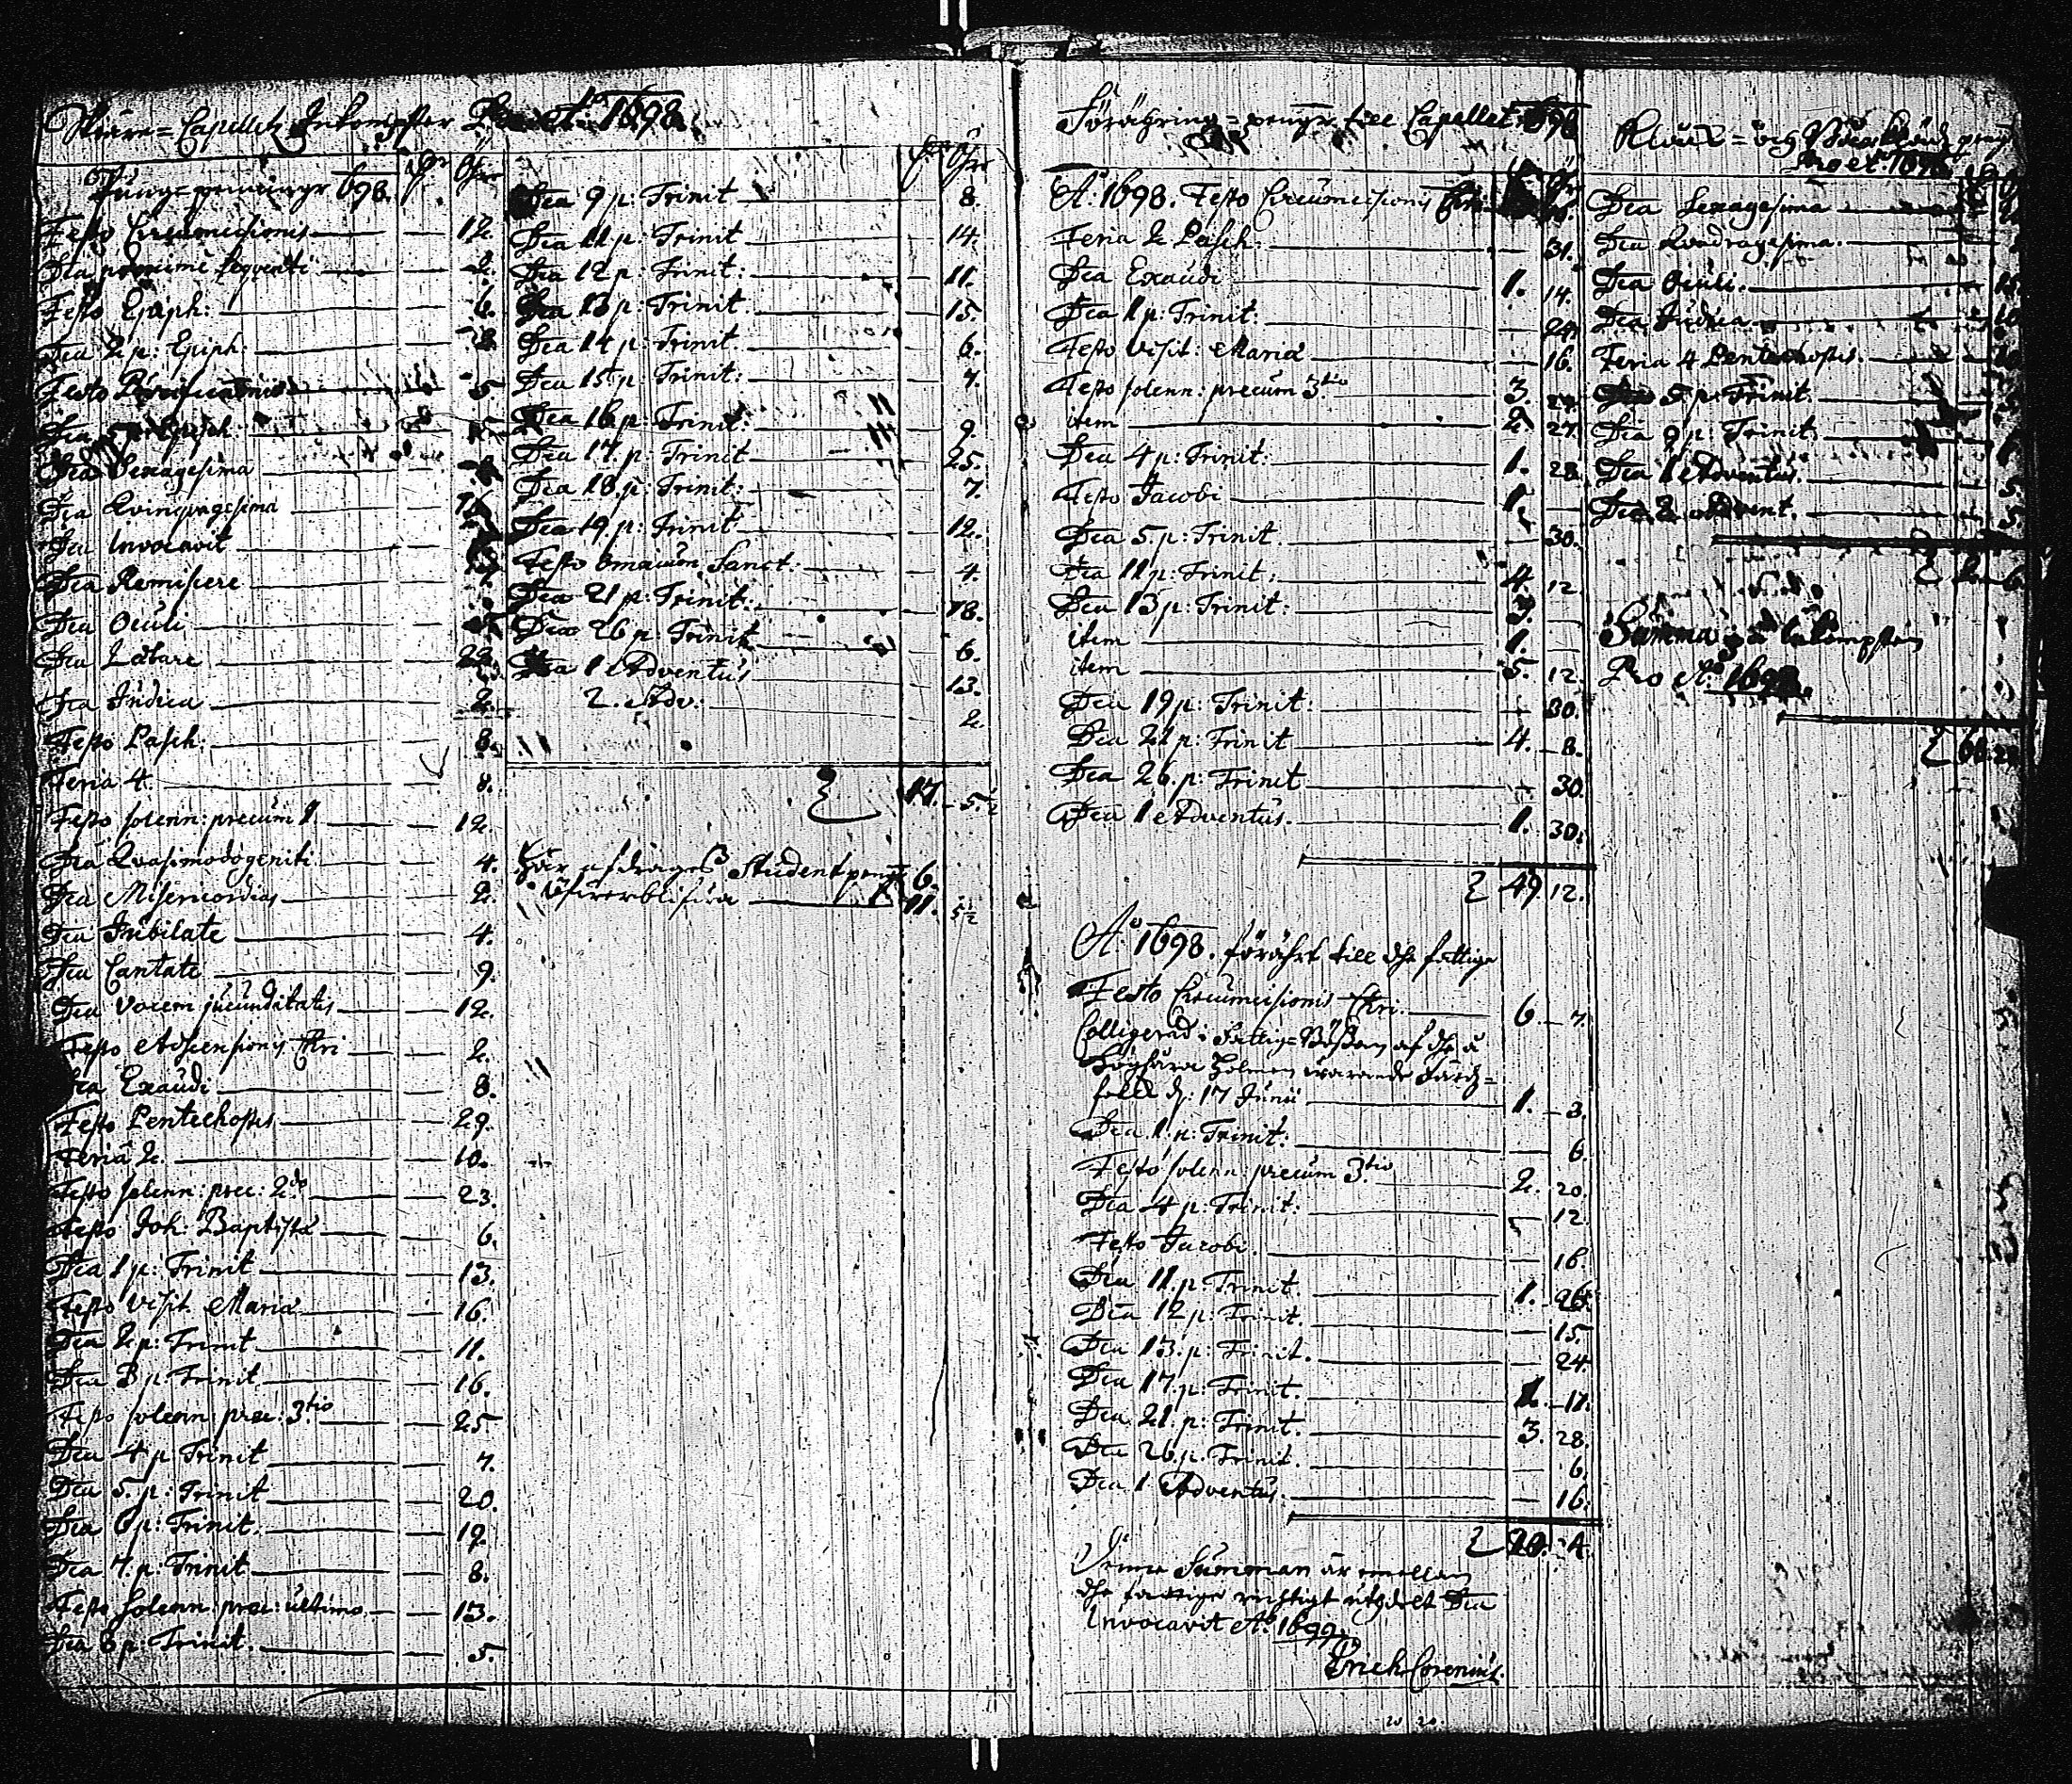 Capellets Inkompster Pro Ao 1698.
Pung-penningr 1698.
Festo Circumcisionis — 12.
Dca proxime seqventi — 2.
Festo Epiph: — 6.
Dca 2 p: Epiph:
Festo Purificationis — 5
Dca Epiph:
Dca Sexagesima
Dca Qvinqvagesima
Dca Invocavit
Dca Remisere
Dca Oculi
Dca Lætare
Dca Judica — 2.
Festo Pasch: — 8.
Feria 4. — 8.
Festo solenn: precum 1. — 12.
Dca Qvasimodogeniti — 4.
Dca Misericordias — 2.
Dca Jubilate — 4.
Dca Cantate — 9.
Dca Vocem jucunditatis — 12.
Festo Adscensionis Chri — 2.
Dca Exaudi — 8.
Festo Pentechostes — 29.
Feria 2. — 10.
Festo solenn: prec: 2do — 23.
Festo Joh: Baptistæ — 6.
Dca 1 p: Trinit — 13.
Festo Visit. Mariæ — 16.
Dca 2 p: Trinit — 11.
Dca 3 p: Trinit. — 16.
Festo solenn prec: 3tio — 25
Dca 4 p Trinit — 7.
Dca 5. p: Trinit — 20.
Dca 6 p: Trinit. — 19.
Dca 7. p: Trinit — 8.
Festo solenn: prec: ultimo — 13.
Dca 8 p: Trinit. — 5.
Dca 9 p: Trinit — 8.
Dca 11 p: Trinit — 14.
Dca 12 p: Trinit: — 11.
Dca 13 p: Trinit. — 15.
Dca 14 p: Trinit — 6.
Dca 15 p: Trinit: — 7.
Dca 16 p: Trinit: — 9.
Dca 17. p: Trinit — 25.
Dca 18. p: Trinit: — 7.
Dca 19 p: Trinit — 12.
Festo Omnium Sanct: — 4.
Dca 21 p: Trinit: — 18.
Dca 26 p: Trinit — 6.
Dca 1 Adventus — 13.
2. Adv: — 2.
Σ 17. 5 ½
Här afdrages Studentpeng: 6.
Öfwerblifwa — 11. 5 ½
Förähring-pengr till Capellet 1698
Ao 1698. Festo Circumcisionis Chri
Feria 2 Pasch. — 31.
Dca Exaudi — 1. 14.
Dca 1 p: Trinit: — 24.
Festo Visit: Mariæ — 16.
Festo solenn: precum 3tio — 3. 24.
item — 2. 27.
Dca 4 p: Trinit: — 1. 28.
Festo Jacobi — 1.
Dca 5. p: Trinit. — 30.
Dca 11 p: Trinit: — 4. 12.
Dca 13 p: Trinit: — 3.
item — 1.
item — 5. 12.
Dca 19 p: Trinit: — 30.
Dca 21 p: Trinit — 4. 8.
Dca 26. p: Trinit — 30.
Dca 1 Adventus. — 1. 30.
Σ 49 12.
Ao 1698. förährt till dhe fattige
Festo Circumcisionis Chri. — 6. 7.
Colligerad i Fattig-Bössan af dhe å
Holmen warande
folck d: 17 Junii — 1. 3.
Dca 1. p: Trinit: — 6.
Festo solenn: precum 3tio — 2. 20.
Dca 4 p: Trinit: — 12.
Festo Jacobi. — 16.
Dca 11. p: Trinit. — 1. 26.
Dca 12 p: Trinit. — 15.
Dca 13. p: Trinit. — 24
Dca 17. p: Trinit. — 1. 11.
Dca 21. p: Trinit. — 3. 28.
Dca 26. p: Trinit. — 6.
Dca 1 Adventus. — 16.
Σ 20. 4.
Denna Summan är emellan
dhe fattige richtigt uthdelt Dca
Invocavit Ao 1699
Erich Corenius.
Pro Ao 1698
Dca Sexagesima
Dca Qvadragesima.
Dca Oculi.
Dca Judica
Feria 4 Pentechostes.
Dca 5 p: Trinit.
Dca 9 p: Trinit.
Dca 1 Adventus. — 5.
Dca 2 Advent. — 5.
Σ 2. 6.
Summa på Inkompsten
Pro Ao 1698.